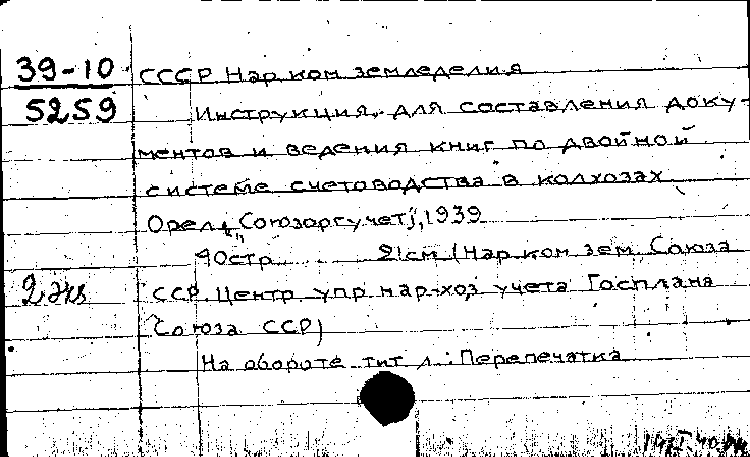 39-10 СССР Нар ком земледелия
5259 Инструкция, для составления доку-
ментов и ведения книг по двойной
системе счетоводства в колхозах
Орел, "Союзоргучет", 1939
40стр. 21см (Нар ком зем. Союза
2 экз ССР. Центр упр нар-хоз учета Госплана
Союза ССР)
На обороте тит л.: Перепечатка